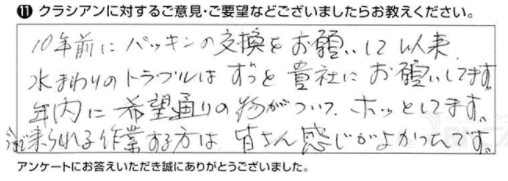 ⑪ クラシアンに対するご意見・ご要望などございましたらお教えください。
10年前にパッキンの交換をお願いして以来、
水まわりのトラブルはずっと貴社にお願いしてます。
年内に希望通りの物がついて、ホッとしてます。
来られる作業する方は皆さん感じがよかったんです。
アンケートにお答えいただき誠にありがとうございました。